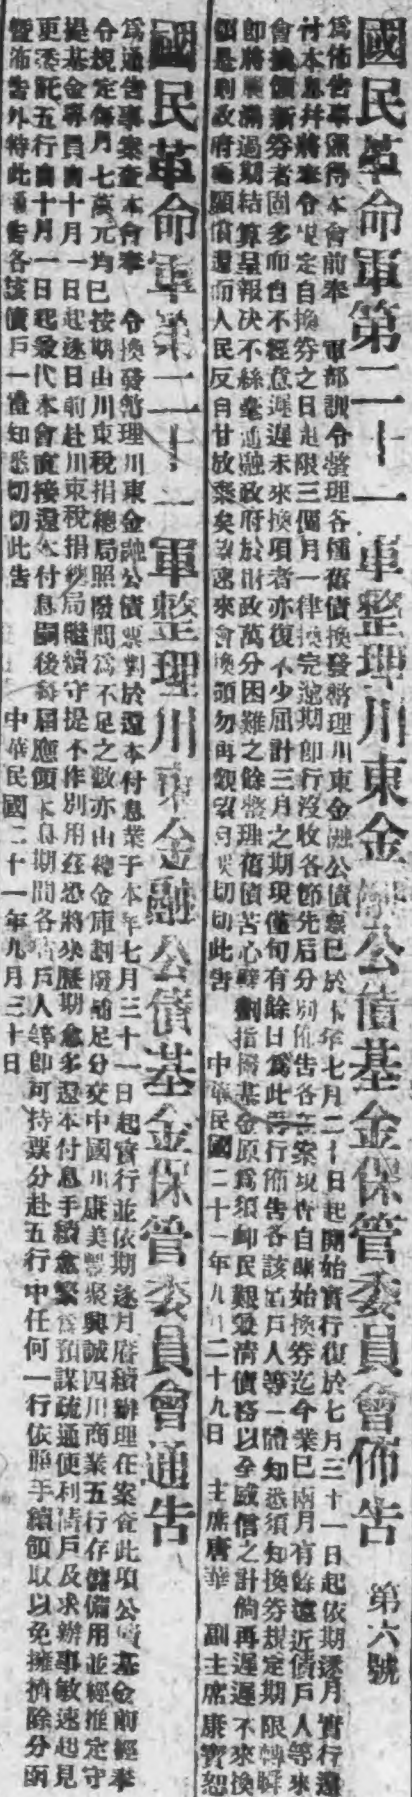 國民革命軍第二十一軍整理川東金融公債基金保管委員會佈告 第六號
爲佈告事案得本會前奉 軍部訓令整理各種舊債換發整理川東金融公債票已於本年七月二十日起開始實行復於七月三十一日起依期逐月實行還
付本息并將奉令規定自換券之日起限三個月一律換完逾期即行沒收各節先后分別佈告各在案現查自開始換券迄今業已兩月有餘遠近債戶人等來
會換領新券者固多而自不經意遲遲未來換項者亦復不少屈計三月之期現僅旬有餘日爲此再行佈告各該債戶人等一體知悉須知換券規定期限轉瞬
即將屆滿過期結算呈報決不絲毫通融政府於財政萬分困難之餘整理舊債苦心擘劃指撥基金原爲須卹民艱發清債務以全威信之計倘再遲遲不來換
領是則政府極願償還而人民反自甘放棄矣 速來會換領勿再觀望 切切此告 中華民國二十一年九月二十九日 主席唐華 副主席康寶恕
國民革命軍第二十一軍整理川東金融公債基金保管委員會通告
爲通告事案查本會奉 令換發整理川東金融公債票對於還本付息業于本年七月三十一日起實行並依期逐月繼續辦理在案查此項公債基金前經奉
令規定每月七萬元均已按期由川東稅捐總局照撥間爲不足之數亦由總金庫劃撥補足分交中國川康美豐聚興誠四川商業五行存儲備用並經推定守
提基金專員自十月一日起逐日前赴川東稅捐總局繼續守提不作別用在恐將來歷期愈多還本付息手續愈繁 預謀疏通便利債戶及求辦事敏速起見
更委託五行自十月一日起代本會直接還本付息嗣後每屆應領本息期間各債戶人等即可持票分赴五行中任何一行依照手續領取以免擁擠除分函
暨佈告外特此通告各該債戶一體知悉切切此告 中華民國二十一年九月三十日